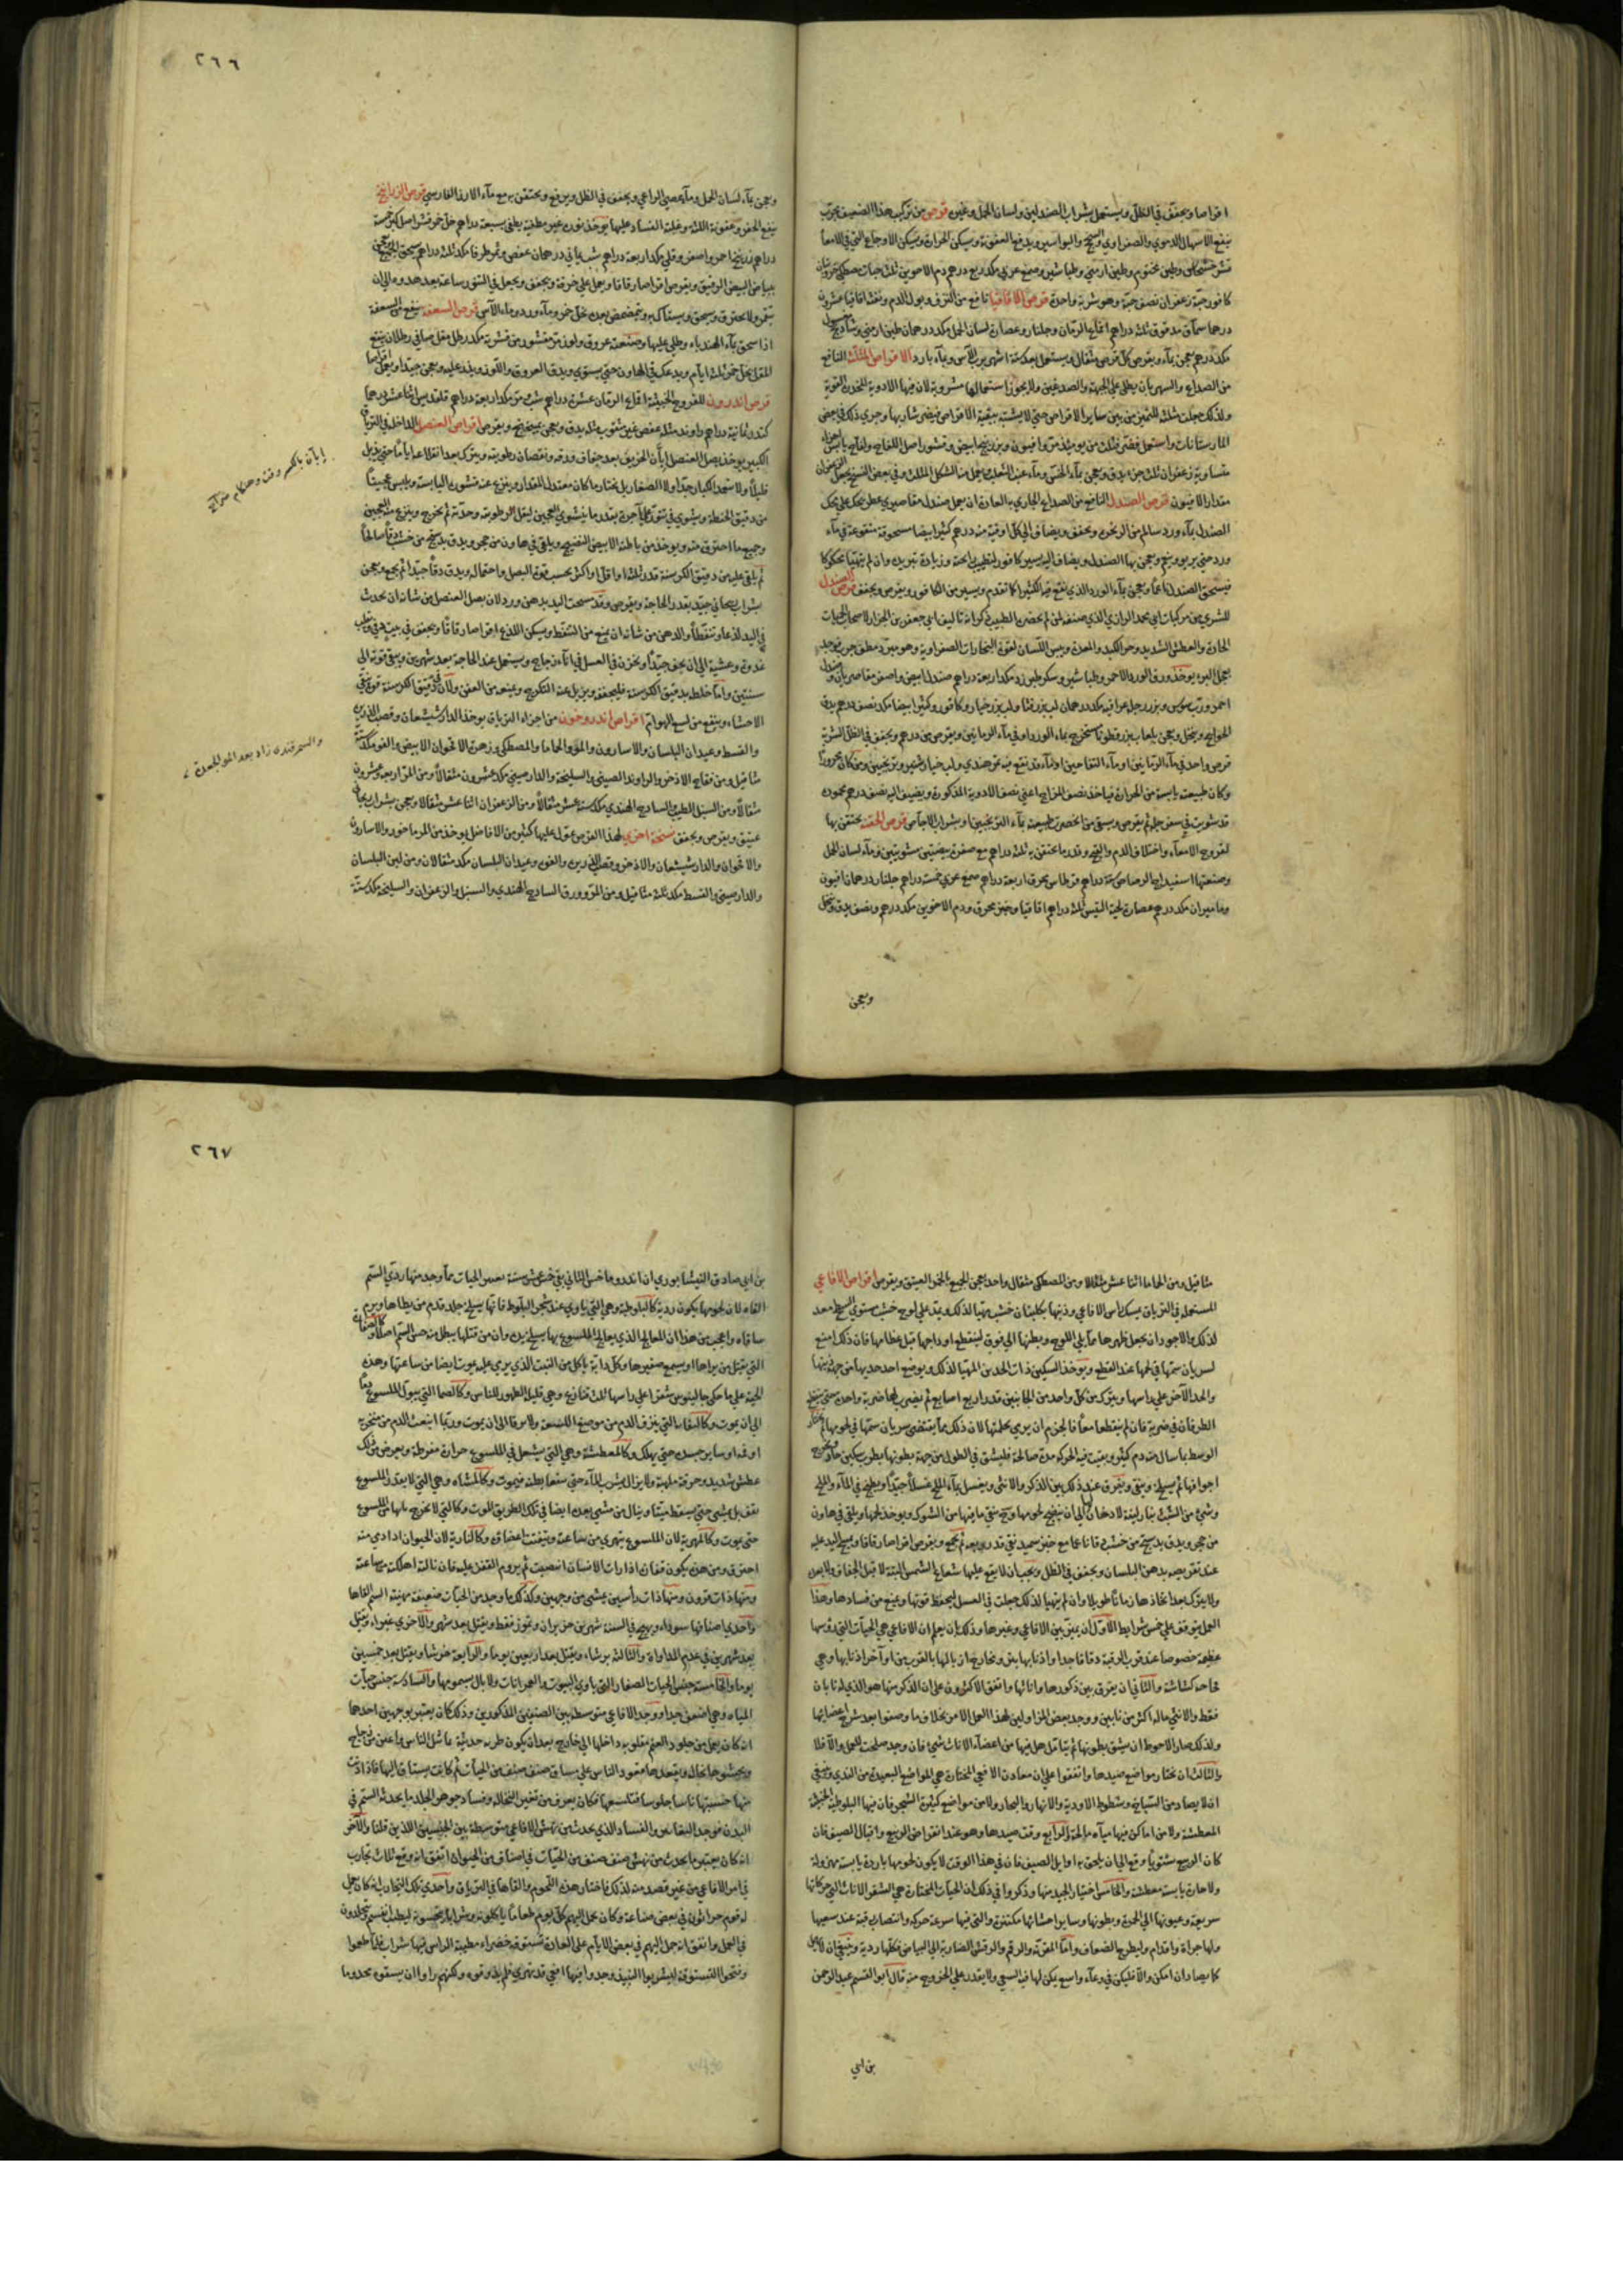 اقراصا ويجفف في الظل ويستعمل بشراب الصندلين ولسان الحمل وغيره قرص من تركيب هذا الضعيف مجرب
ينفع الاسهال الدموي والصفراوي والسحج والبواسير ويدفع العفونة ويسكن الحرارة ويسكن الاوجاع التي في الامعا
وطين مختوم وطين ارمني وطباشير وصمغ عربي مكد ربع درهم دم الاخوين ثلث حبات مصطكي
كافور حبة زعفران نصف حبة وهو شربة واحدة قرص الاقاقيا نافع من النزف وبول الدم ونفث اقاقيا عشرون
درهما سماق مدقوق ثلثة دراهم اقماع الرمان وجلنار وعصارة لسان الحمل مكد درهمان طين ارمني وشادنج
مكد درهم يعجن بماء ويقرص كل قرص مثقال ويستعمل بعد ستة اشهر برب الآس وبماء بارد الاقراص المثلثة النافع
من الصداع والسهر بان يطلى على الجبهة والصدغين ولا يجوز استعمالها مشروبة لان فيها الادوية المخدرة القوية
ولذلك جعلت مثلثة للتميز من بين ساير الاقراص حتى لا يشتبه ببقية الاقراص فيضر شاربها وجرى ذلك في بعض
المارستانات واستعمل فضر فثلث من يومئذ مر وافيون وبزر بنج ابيض وقشور اصل اللفاح ولفاح يابس اجزاء
متساوية زعفران ثلث جزء يدق ويعجن بماء الخس وماء عنب الثعلب ويعمل منه الشكل المثلث وفي بعض النسخ يجعل الزعفران
مقدار الافيون قرص الصندل النافع من الصداع الجاري به العادة ان يعمل صندل مقاصيري عطر يحك على محك
الصندل بماء ورد سالم من الزنخ ويجفف ويضاف الى كل اوقية منه درهم كثيرا بيضا مسحوقة منقوعة في ماء
ورد حتى يربو وينعم ويعجن بها الصندل ويضاف اليه يسير كافور لتطييب رايحته وزيادة تبريد وان لم يتهيا محكوكا
فيسحق الصندل ناعما ويعجن بماء الورد الذي نقع فيه الكثيرا كما تقدم ويسير من الكافور ويقرص ويجفف قرص الصندل
للشري من مركبات ابي محمد الرازي الذي صنفه لمن لم يحضره الطبيب ذكر انه تاليف ابي جعفر بن الجزار لاصحاب الحميات
الحادة والعطش الشديد وحر الكبد والمعدة ويبس اللسان لقوة البخارات الصفراوية وهو مبرد مطف
يعجل البرء يوخذ ورق الورد الاحمر وطباشير وسكر طبرزد مكد اربعة دراهم صندل ابيض واصفر مقاصيريان وصندل
احمر ورب سوس وبزر رجلة عراقية مكد درهمان لب بزر قثا ولب بزر خيار وكافور وكثيرا بيضا مكد نصف درهم يدق
الحوايج وينخل ويعجن بلعاب بزر قطونا مستخرج بماء الورد او في ماء الرمانين ويقرص من درهم ويجفف في الظل الشربة
قرص واحد في ماء الرمانين او ماء التفاحين او ماء قد نقع فيه تمر هندي ولب خيار شنبر وترنجبين ومن كان محرورا
وكان طبيعته يابسة من الحرارة فياخذ نصف المزاج اعني نصف الادوية المذكورة ويضيف اليه نصف درهم محموده
قد شويت في سفرجلة ثم يقرص ويسقى من انحصرت طبيعته بماء الترنجبين او بشراب الاجاص قرص الحقنة يحتقن بها
لقروح الامعاء واختلاف الدم والقيح وقدر ما يحتقن به ثلثة دراهم مع صفرة بيضتين مشويتين وماء لسان الحمل
وصنعتها اسفيداج الرصاص ستة دراهم قرطاس محرق اربعة دراهم صمغ عربي خمسة دراهم جلنار درهمان افيون
وماميران مكد درهم عصارة لحية التيس ثلثة دراهم اقاقيا وخبز محرق ودم الاخوين مكد درهم ونصف يدق وينخل
ويعجن
٢٦٦
ويعجن بماء لسان الحمل وماء عصى الراعي ويجفف في الظل ويرفع ويحتقن به مع ماء الارز الفارسي قرص الزرانيخ
ينفع الحفر وعفونة اللثة وغلبة الفساد عليها يوخذ نورة غير مطفية يطفى بسبعة دراهم خل خمر قشر اصل كبر خمسة
دراهم زرنيخ احمر واصفر وقلي مكد اربعة دراهم شب يماني درهمان عفص وثمر طرفا مكد ثلثة دراهم يسحق الجميع ويعجن
ببياض البيض الرقيق ويقرص اقراصا رقاقا ويعمل على خرقة ويجفف ويجعل في التنور ساعة بعد هدوه الى ان
يتحمر ولا يحترق ويسحق ويستاك به ويتمضمض بعده بخل خمر وماء ورد وماء الآس قرص السعفة ينفع من السعفة
اذا سحق بماء الهندباء وطلي عليها وصنعته عروق ولوز مر مقشور من قشريه مكد رطل مقل صافي رطلان ينقع
المقل بخل خمر ثلثة ايام ويدعك في الهاون حتى يستوي ويدق العروق واللوز ويلقى عليه ويعجن جيدا ويعمل اقراصا
قرص اندرون للقروح الخبيثة اقماع الرمان عشرة دراهم شب مر مكد اربعة دراهم قلقديس اثنا عشر درهما
كندر ثمانية دراهم زراوند مثله عفص غير مثقوب مثله يدق ويعجن بميفختج ويقرص اقراص العنصل الداخل في الترياق
الكبير يوخذ بصل العنصل إبان الخريف بعد جفاف ورقه ونقصان رطوبته ويترك بعد انقلاعه اياما حتى يذبل
قليلا ولا يستعمل الكبار جدا ولا الصغار بل يختار ما كان معتدل المقدار وينزع عنه قشوره اليابسة ويلبس عجينا
من دقيق الحنطة ويشوى في تنور على آجرة بقدر ما ينشوي العجين ليقل الرطوبة وحدته ثم يخرج وينزع منه العجين
وجميع ما احترق منه ويوخذ من باطنه الابيض النضيج ويلقى في هاون من حجر ويدق بدستج من خشب دقا صالحا
ثم يلقى عليه من دقيق الكرسنة قدر ثلثه او اقل او اكثر بحسب قوة البصل واحتماله ويدق دقا جيدا ثم يجمع ويعجن
بشراب ريحاني جيد بقدر الحاجة ويقرص وقد مسحت اليد بدهن ورد لان بصل العنصل من شانه ان يحدث
في اليد لذعا وتنفطا والدهن من شانه ان يمنع من التنفط ويسكن اللذع اقراصا رقاقا ويجفف في بيت
غدوة وعشية الى ان يجف جيدا ويخزن في العسل في اناء زجاج ويستعمل عند الحاجة بعد شهرين ويبقى قوته الى
سنتين وانما خلط به دقيق الكرسنة فليجففه ويزيل عنه التكرج ويمنعه من العفن ولان في دقيق الكرسنة قوة تنقي
الاحشاء وينفع من لسع الهوام اقراص اندروخون من اجزاء الترياق يوخذ الدارشيشعان وقصب الذريرة
والقسط وعيدان البلسان والاسارون والمو والحاما والمصطكي وزهرة الاقحوان الابيض والفو مكد ستة
مثاقيل ومن فقاح الاذخر والراوند الصيني والسليخة والدارصيني مكد عشرون مثقالا ومن المر اربعة وعشرون
مثقالا ومن السنبل الطيب والساذج الهندي مكد ستة عشر مثقالا ومن الزعفران اثنا عشر مثقالا ويعجن بشراب ريحاني
عتيق ويقرص ويجفف نسخة اخرى لهذا القرص عول عليها كثير من الافاضل يوخذ من المرماخور والاسارون
والاقحوان والدارشيشعان والاذخر وقصب الذريرة والفو وعيدان البلسان مكد مثقالان ومن لبن البلسان
والدارصيني والقسط مكد ثلثة مثاقيل ومن المر وورق الساذج الهندي والسنبل والزعفران والسليخة مكد ستة
إبان بالكسر وقت وهنكام
والسمرقندى زاد بعد المو
مثاقيل ومن الحاما اثنا عشر مثقالا ومن المصطكي مثقال واحد يعجن الجميع بالخمر العتيق ويقرص اقراص الافاعي
المستعملة في الترياق يمسك راس الافاعي وذنبها بكلبتان خشب مهيا لذلك ويمد على لوح خشب مستوي السطح معد
لذلك والاجود ان يجعل ظهرها مما يلي اللوح وبطنها الى فوق لينقطع اوداجها قبل عظامها فان ذلك امنع
لسريان سمها في لحمها عند القطع ويوخذ السكين ذات الحدين المهيا لذلك ويوضع احد حديها من جهة ذنبها
والحد الآخر على راسها ويترك من كل واحد من الجانبين قدر اربع اصابع ثم يضرب بها ضربة واحدة حتى ينقطع
الطرفان في ضربة فان لم ينقطعا معا فالجزم ان يرمى بجملتها لان ذلك مما يقتضي سريان سمها في لحومها ثم يختار
الوسط ما سال منه دم كثير وبقيت فيه الحركة مدة صالحة فليشق في الطول من جهة بطونها بطرف سكين حاد ويخرج
اجوافها ثم يسلخ وينقى ويفرق عند ذلك بين الذكر والانثى ويغسل بماء الملح غسلا جيدا ويطبخ في الماء والملح
وشيء من الشبت بنار لينة لا دخان لها الى ان ينضج لحومها ويخرج ينقى ما فيها من الشوك ويوخذ لحمها ويلقى في هاون
من حجر ويدق بدستج من خشب دقا ناعما مع خبز سميد نقي قدر ربعه ثم يجمع ويقرص اقراصا رقاقا ويمسح اليد عليه
عند تقريصه بدهن البلسان ويجفف في الظل ويجب ان لا يقع عليها شعاع الشمس البتة لا قبل الجفاف ولا بعده
ولا يترك بعد اتخاذها زمانا طويلا وان لم يتهيا لذلك جعلت في العسل ليحفظ قوتها ويمنع من فسادها وهذا
العمل يتوقف على خمس شرايط الاول ان يميز بين الافاعي وغيرها وذلك ان يعلم ان الافاعي هي الحيات التي رؤسها
عظيمة خصوصا عند قرب الرقبة دقاقا جدا واذنابها بتر ومخارج ازبالها بالقرب من اواخر اذنابها وهي
والثاني ان يفرق بين ذكورها واناثها واتفق الاكثرون على ان الذكر منها هو الذي له نابان
فقط والانثى ما له اكثر من نابين ووجد بعض المزاولين لهذا العمل الامر بخلاف ما وصفوا بعد شرح اعضائها
ولذلك صار الاحوط ان يشق بطونها ثم يتامل هل فيها من اعضاء الاناث شيء فان وجد صلحت للعمل والا فلا
والثالث ان تختار مواضع صيدها واتفقوا على ان معادن الافعى المختارة هي المواضع البعيدة من الندي وينبغي
ان لا يصاد من السباخ وشطوط الاودية والانهار والبحار ولا من مواضع كثيرة الشجر فان فيها البلوطية الخبيثة
المعطشة ولا من اماكن فيها مياه مالحة والرابع وقت صيدها وهو عند انقراض الربيع واقبال الصيف فان
كان الربيع شتويا دفع الى ان يلحق به اوايل الصيف فان في هذا الوقت لا يكون لحومها باردة يابسة مهزولة
ولا حارة يابسة معطشة والخامس اختيار الجيد منها وذكروا في ذلك ان الحيات المختارة هي الشقر الاناث التي حركاتها
سريعة وعيونها الى الحمرة وبطونها وساير احشائها مكتنزة والتي فيها سرعة حركة وانتصاب رقبة عند سعيها
ولها جراة واقدام وليطرح الضعاف واما المقرنة والرقم والرقش الضاربة الى البياض فكلها ردية وينبغي ان لا
كما يصاد ان امكن والا فليكن في وعاء واسع يمكن لها فيه السعي ولا يقدر على الخروج منه قال ابو القسم عبد الرحمن
بن ابي
٢٦٧
بن ابي صادق النيشابوري ان اندروماخس الثاني بقي خمس عشر سنة الحيات مما وجد منها ردي السم
القاه لان لحومها يكون ردية كالبلوطية وهي التي ياوي عند شجر البلوط فانها يسلخ جلد قدم من يطاها ويرم
ساقاه واعجب من هذا ان المعالج الذي يعالج الملسوع بها يسلخ يده وان من قتلها يبطل منه حس الشم اصلا
التي يقتل من يراها او يسمع صفيرها وكل دابة ياكل من النبت الذي يرى عليه يموت ايضا من ساعتها وهذه
الحية على ما حكى جالينوس شقرا على راسها ثلث قنازع وهي قليلة الظهور للناس وكالصما التي يبول الملسوع دما
الى ان يموت وكالتي ينزف الدم من موضع اللسعة ولا يرقا الى ان يموت وربما انبعث الدم من منخريه
او فيه او ساير جسده حتى يهلك وكالمعطشة وهي التي يشعل في الملسوع حرارة مفرطة ويعرض من ذلك
عطش شديد وحرقة ملهبة ولا يزال يشرب الماء حتى بطنه فيموت وهي التي لا يقدر الملسوع
يقف بل يمشي حتى يسقط ميتا وينال من مشى بعده ايضا في تلك الطريق الموت وكالتي
حتى يموت وكالمهرية لان الملسوع يتهرى من ساعته ويتفتت اعضاؤه وكالنارية لان الحيوان اذا دنى منه
احترق ومن هذه يكون اذا رات الانسان انتصبت ثم يروم القفز عليه فان نالته اهلكته من ساعته
ومنها ذات قرون ومنها ذات راسين يمشي من وجهين وكذلك ما وجد من الحيات ضعيفة مهينة السم القاها
واحدى اصنافها سوداء ويهيج في السنة شهرين حزيران وتموز فقط ويقتل بعد شهر والاخرى غبراء ويقتل
بعد شهرين في عدم المداواة والثالثة برشاء ويقتل بعد اربعين يوما والرابعة حرشا ويقتل بعد خمسين
يوما والخامسة جنس الحيات الصغار التي ياوي البيوت والعمرانات ولا يبالى بسمومها والسادسة جنس حيات
المياه وهي اضعف جدا ووجد الافاعي متوسطة بين الصنفين المذكورين وذلك كان يعتبر بوجهين احدهما
انه كان يعمل من جلود الغنم مقلوبة داخلها الى خارج بعد ان يكون طرية حديثة تماثيل الناس واعين من زجاج
ويحشوها نخالة ويقعدها قعود الناس على مساق صنف صنف من الحيات ثم كانت يستاق اليها فاذا
منها حسبتها ناسا جلوسا فتلسعها فكان يعرف من تغير النخالة وفساد جوهر الجلد ما يحدث السم في
البدن فوجد والفساد الذي يحدث من نهش الافاعي متوسطة بين الجنسين اللذين قلنا والآخر
انه كان يعتبر ما يحدث من نهش صنف صنف من الحيات في اصناف من الحيوان اتفق انه وقع ثلاث تجارب
في امر الافاعي من غير قصد منه لذلك فاختار هذه اللحوم والقاها في الترياق واحدى تلك التجارب انه كان
له قوم حراثون في بعض ضياعه وكان يحمل اليهم كل يوم طعاما ياكلونه وشرابا يحتسونه ليطيب انفسهم
في العمل واتفق انه حمل اليهم في بعض الايام على العادة بستوقة خضراء مطينة الراس فيها شراب فلما طعموا
وفتحوا البستوقة ليشربوا النبيذ وجدوا فيها افعى قد تهرى فلم يذوقوه ولكنهم راوا ان يسقوه مجذوما